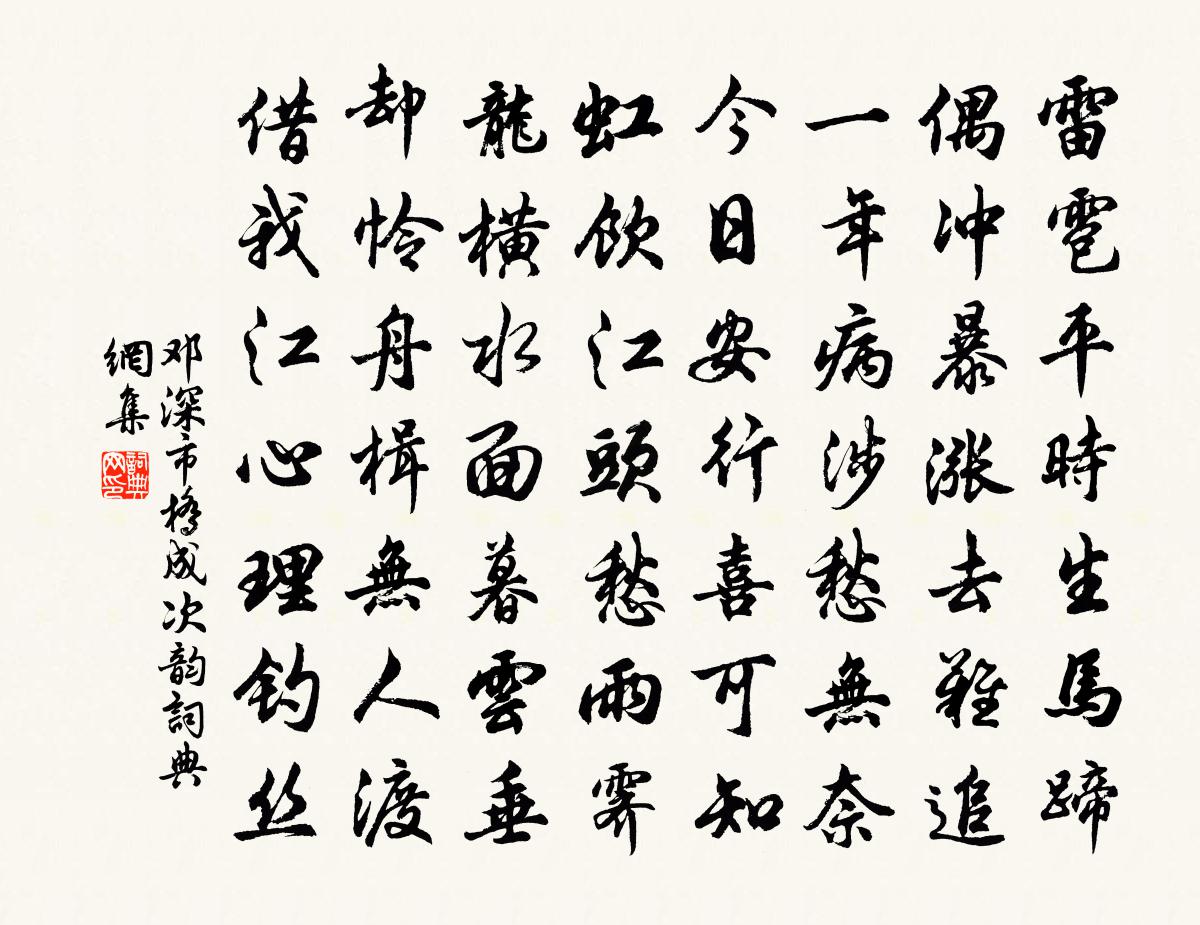 雷雹平時生馬蹄
偶冲暴漲去難追
一年病涉愁無奈
今日安行喜可知
虹飲江頭愁雨霽
龍橫水面暮雲垂
却憐舟楫無人渡
借我江心理釣丝
邓深市橋成次韵詞典
網集
詞典
网印